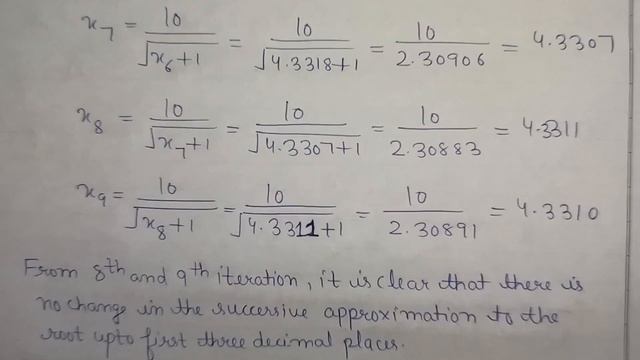 x₇ = 10/√(x₆+1) = 10/√(4.3318+1) = 10/2.30906 = 4.3307
x₈ = 10/√(x₇+1) = 10/√(4.3307+1) = 10/2.30883 = 4.3311
x₉ = 10/√(x₈+1) = 10/√(4.3311+1) = 10/2.30891 = 4.3310
From 8th and 9th iteration, it is clear that there is
no change in the successive approximation to the
root upto first three decimal places.